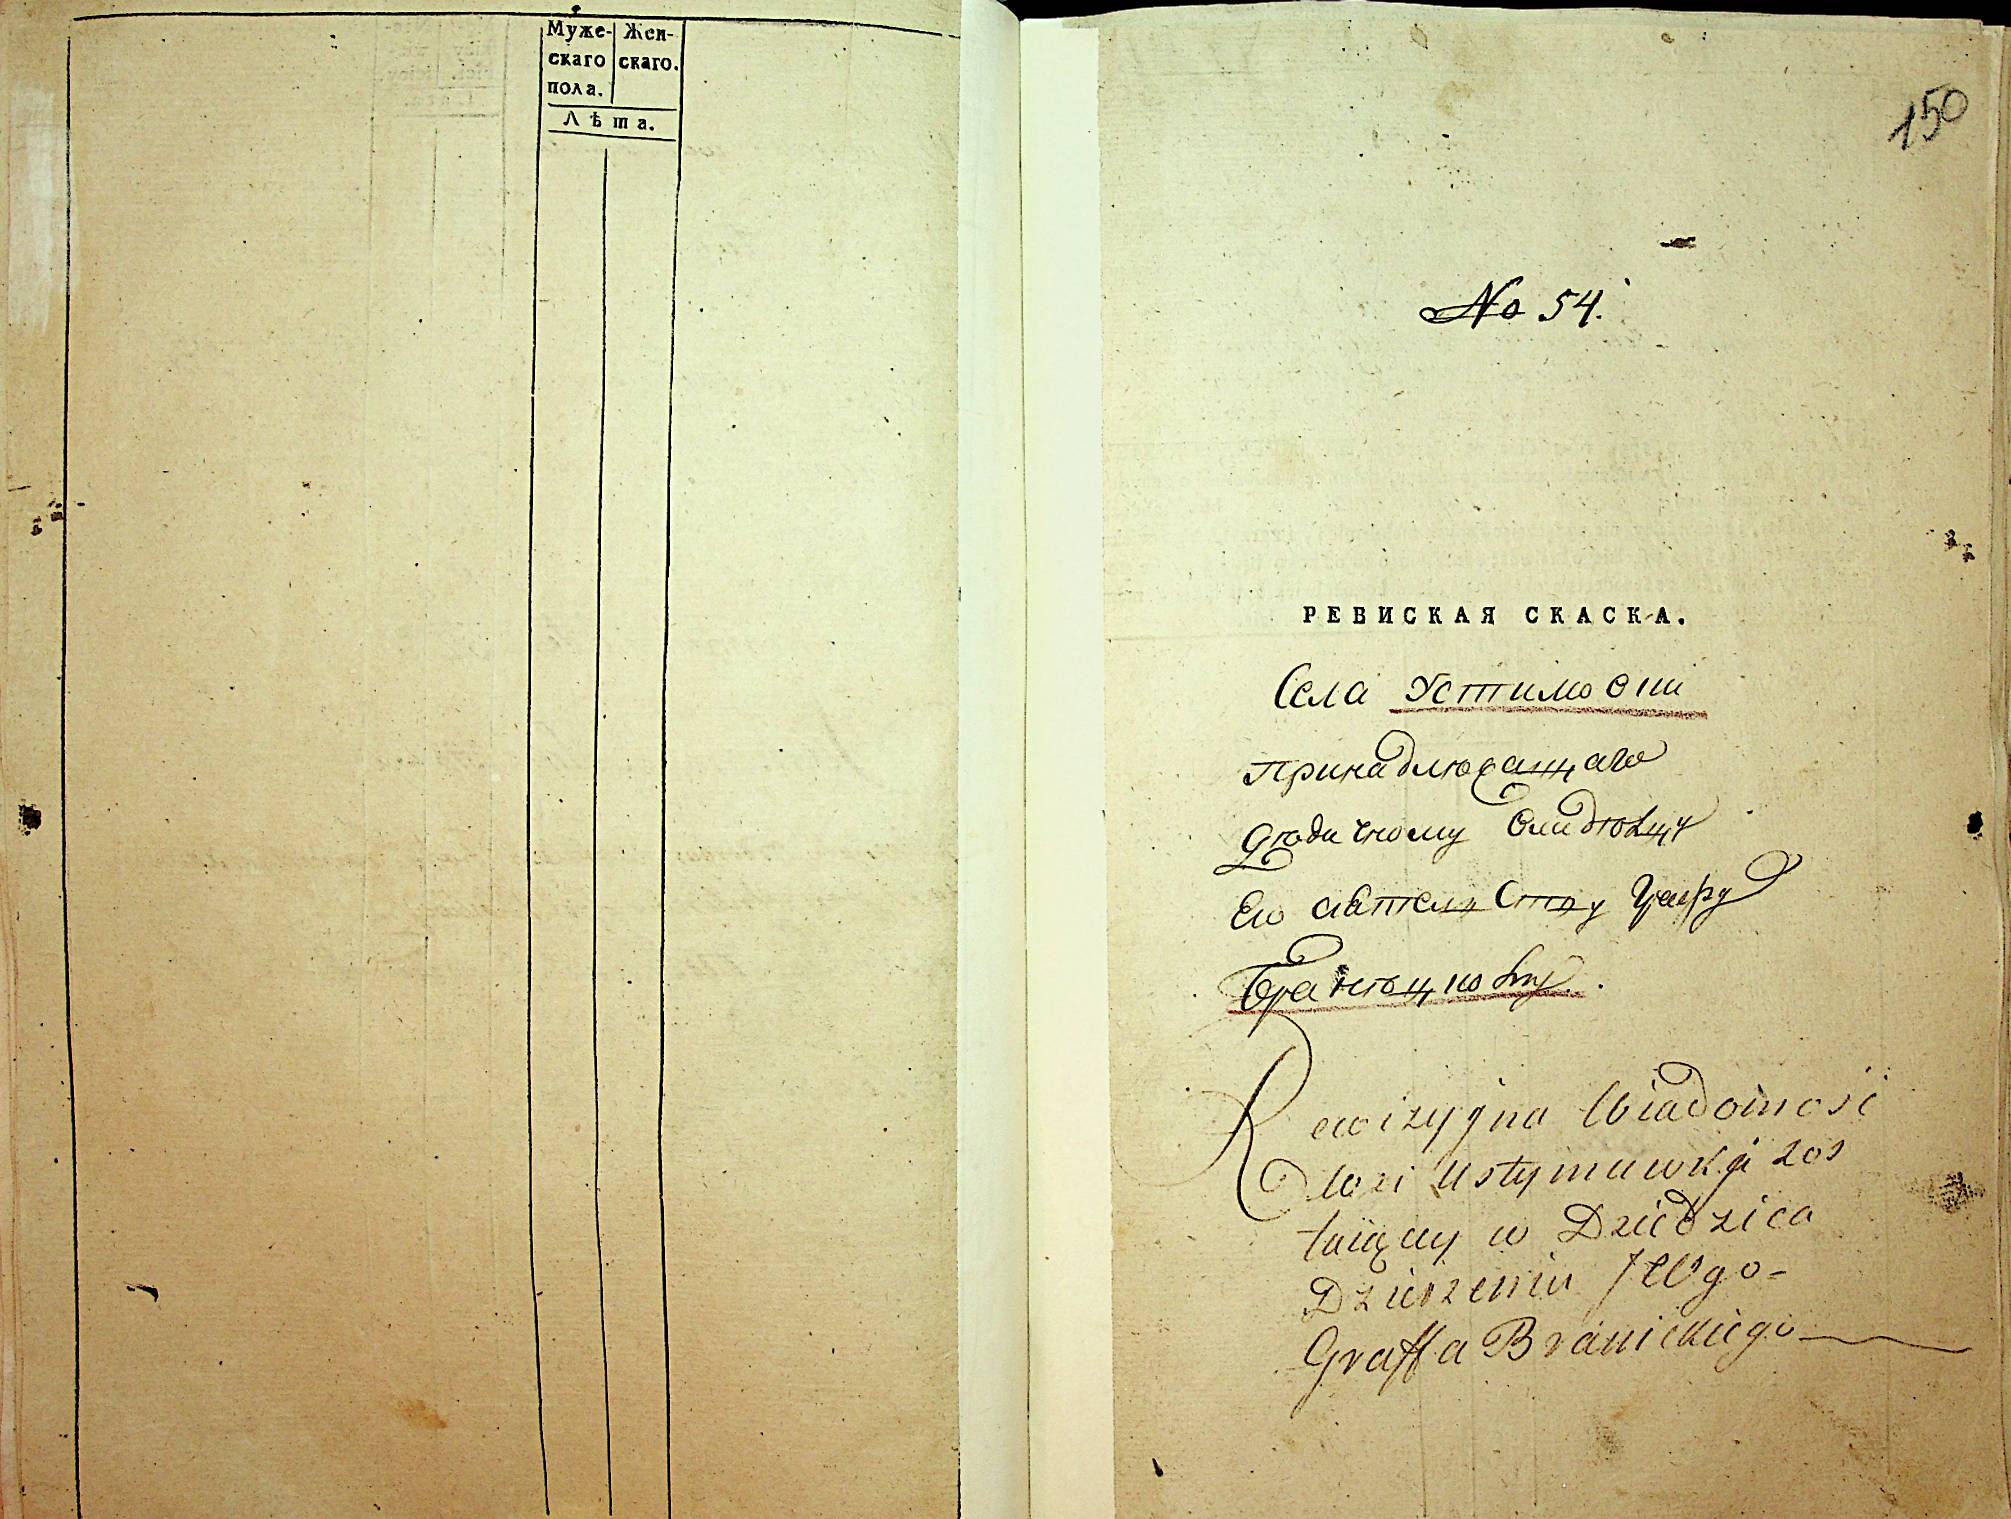 Муже-
скаго
пола.
Жен-
скаго.
Лѣта.
150
No 54.
РЕВИСКАЯ СКАСКА.
Села Устимовки
принадлежащаго
Его Сіятельству Графу
Браницкому.
Rewizyjna Wiadomość
Wsi Ustymuwki zos
taiący w Dziedzica
Dziedzeniu JWgo-
Graffa Branickiego